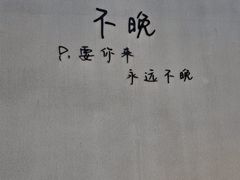 不晚
只要你来
永远不晚